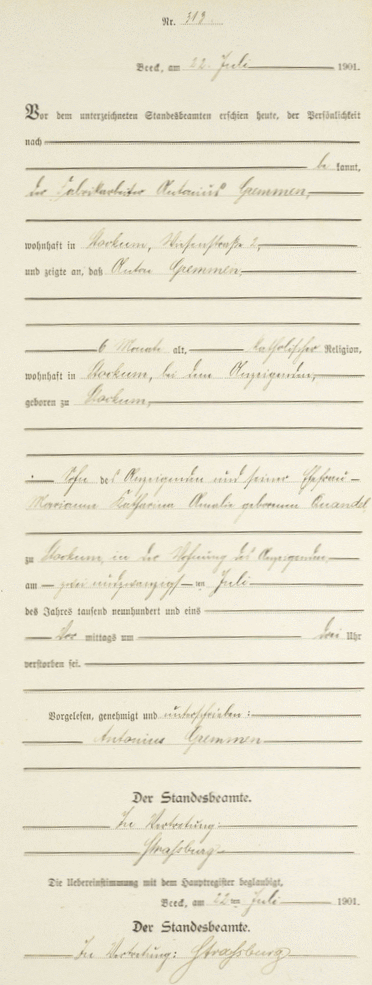 Nr. 313.
Beeck, am 22. Juli 1901.
Vor dem unterzeichneten Standesbeamten erschien heute, der Persönlichkeit
nach
be kannt,
der Fabrikarbeiter Antonius Gremmen,
wohnhaft in Stockum, Wiesenstraße 2,
und zeigte an, daß Anton Gremmen,
6 Monate alt, katholischer Religion,
wohnhaft in Stockum, bei dem Anzeigenden,
geboren zu Stockum,
Sohn des Anzeigenden und seiner Ehefrau
Marianna Katharina Amalie geborenen Quandel,
zu Stockum, in der Wohnung des Anzeigenden
am zwei und zwanzigsten Juli
des Jahres tausend neunhundert und eins
Vor mittags um drei Uhr
verstorben sei.
Vorgelesen, genehmigt und unterschrieben:
Antonius Gremmen
Der Standesbeamte.
In Vertretung:
Strassburg.
Die Uebereinstimmung mit dem Hauptregister beglaubigt.
Beeck, am 22ten Juli 1901.
Der Standesbeamte.
In Vertretung: Strassburg